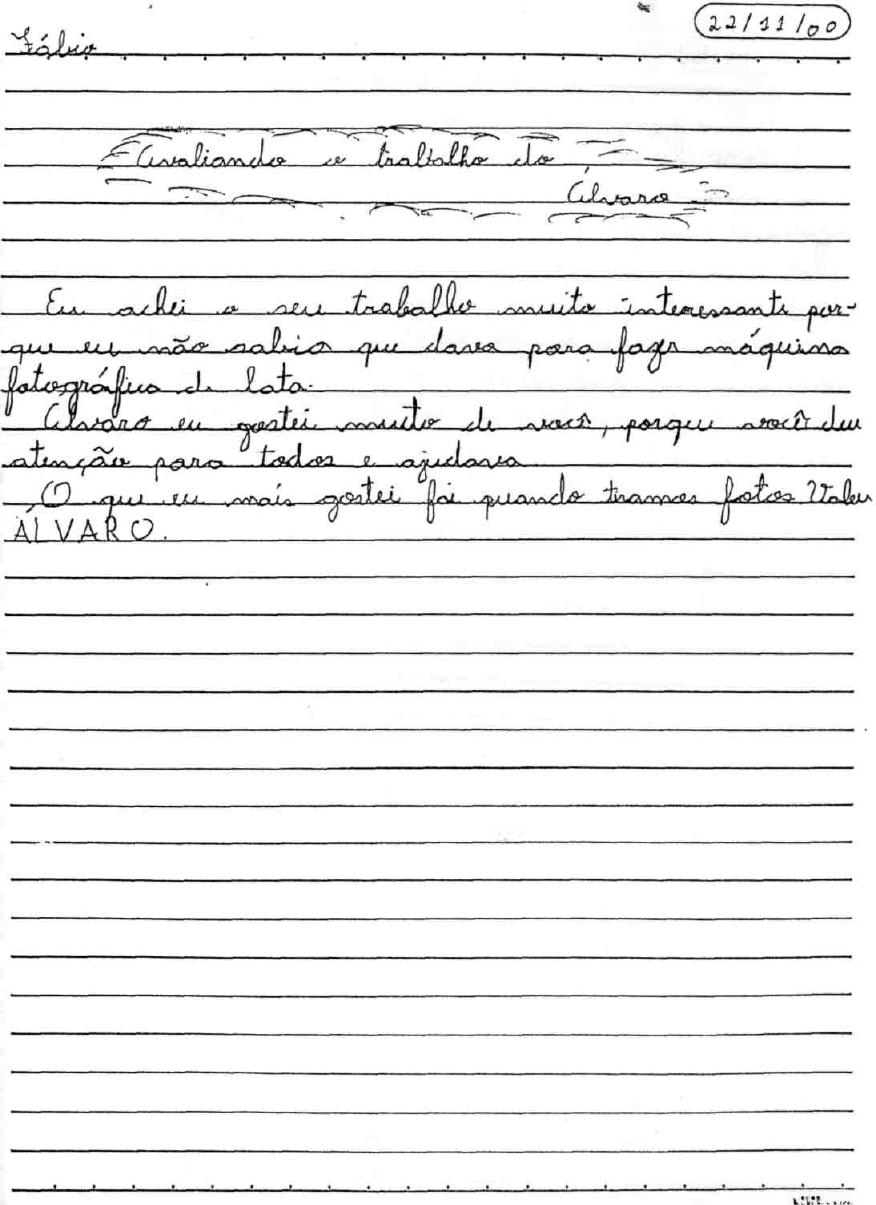 22/11/00
Fábio
Avaliando o trabalho do
Álvaro
Eu achei o seu trabalho muito interessante por-
que eu não sabia que dava para fazer máquina
fotográfica de lata.
Álvaro eu gostei muito de você, porque você deu
atenção para todos e ajudava
O que eu mais gostei foi quando tiramos fotos Valeu
ÁLVARO.